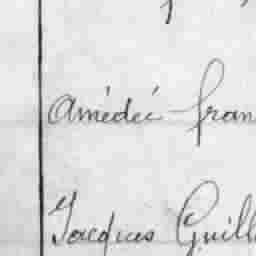 Amédée-fran
Jacques Guill